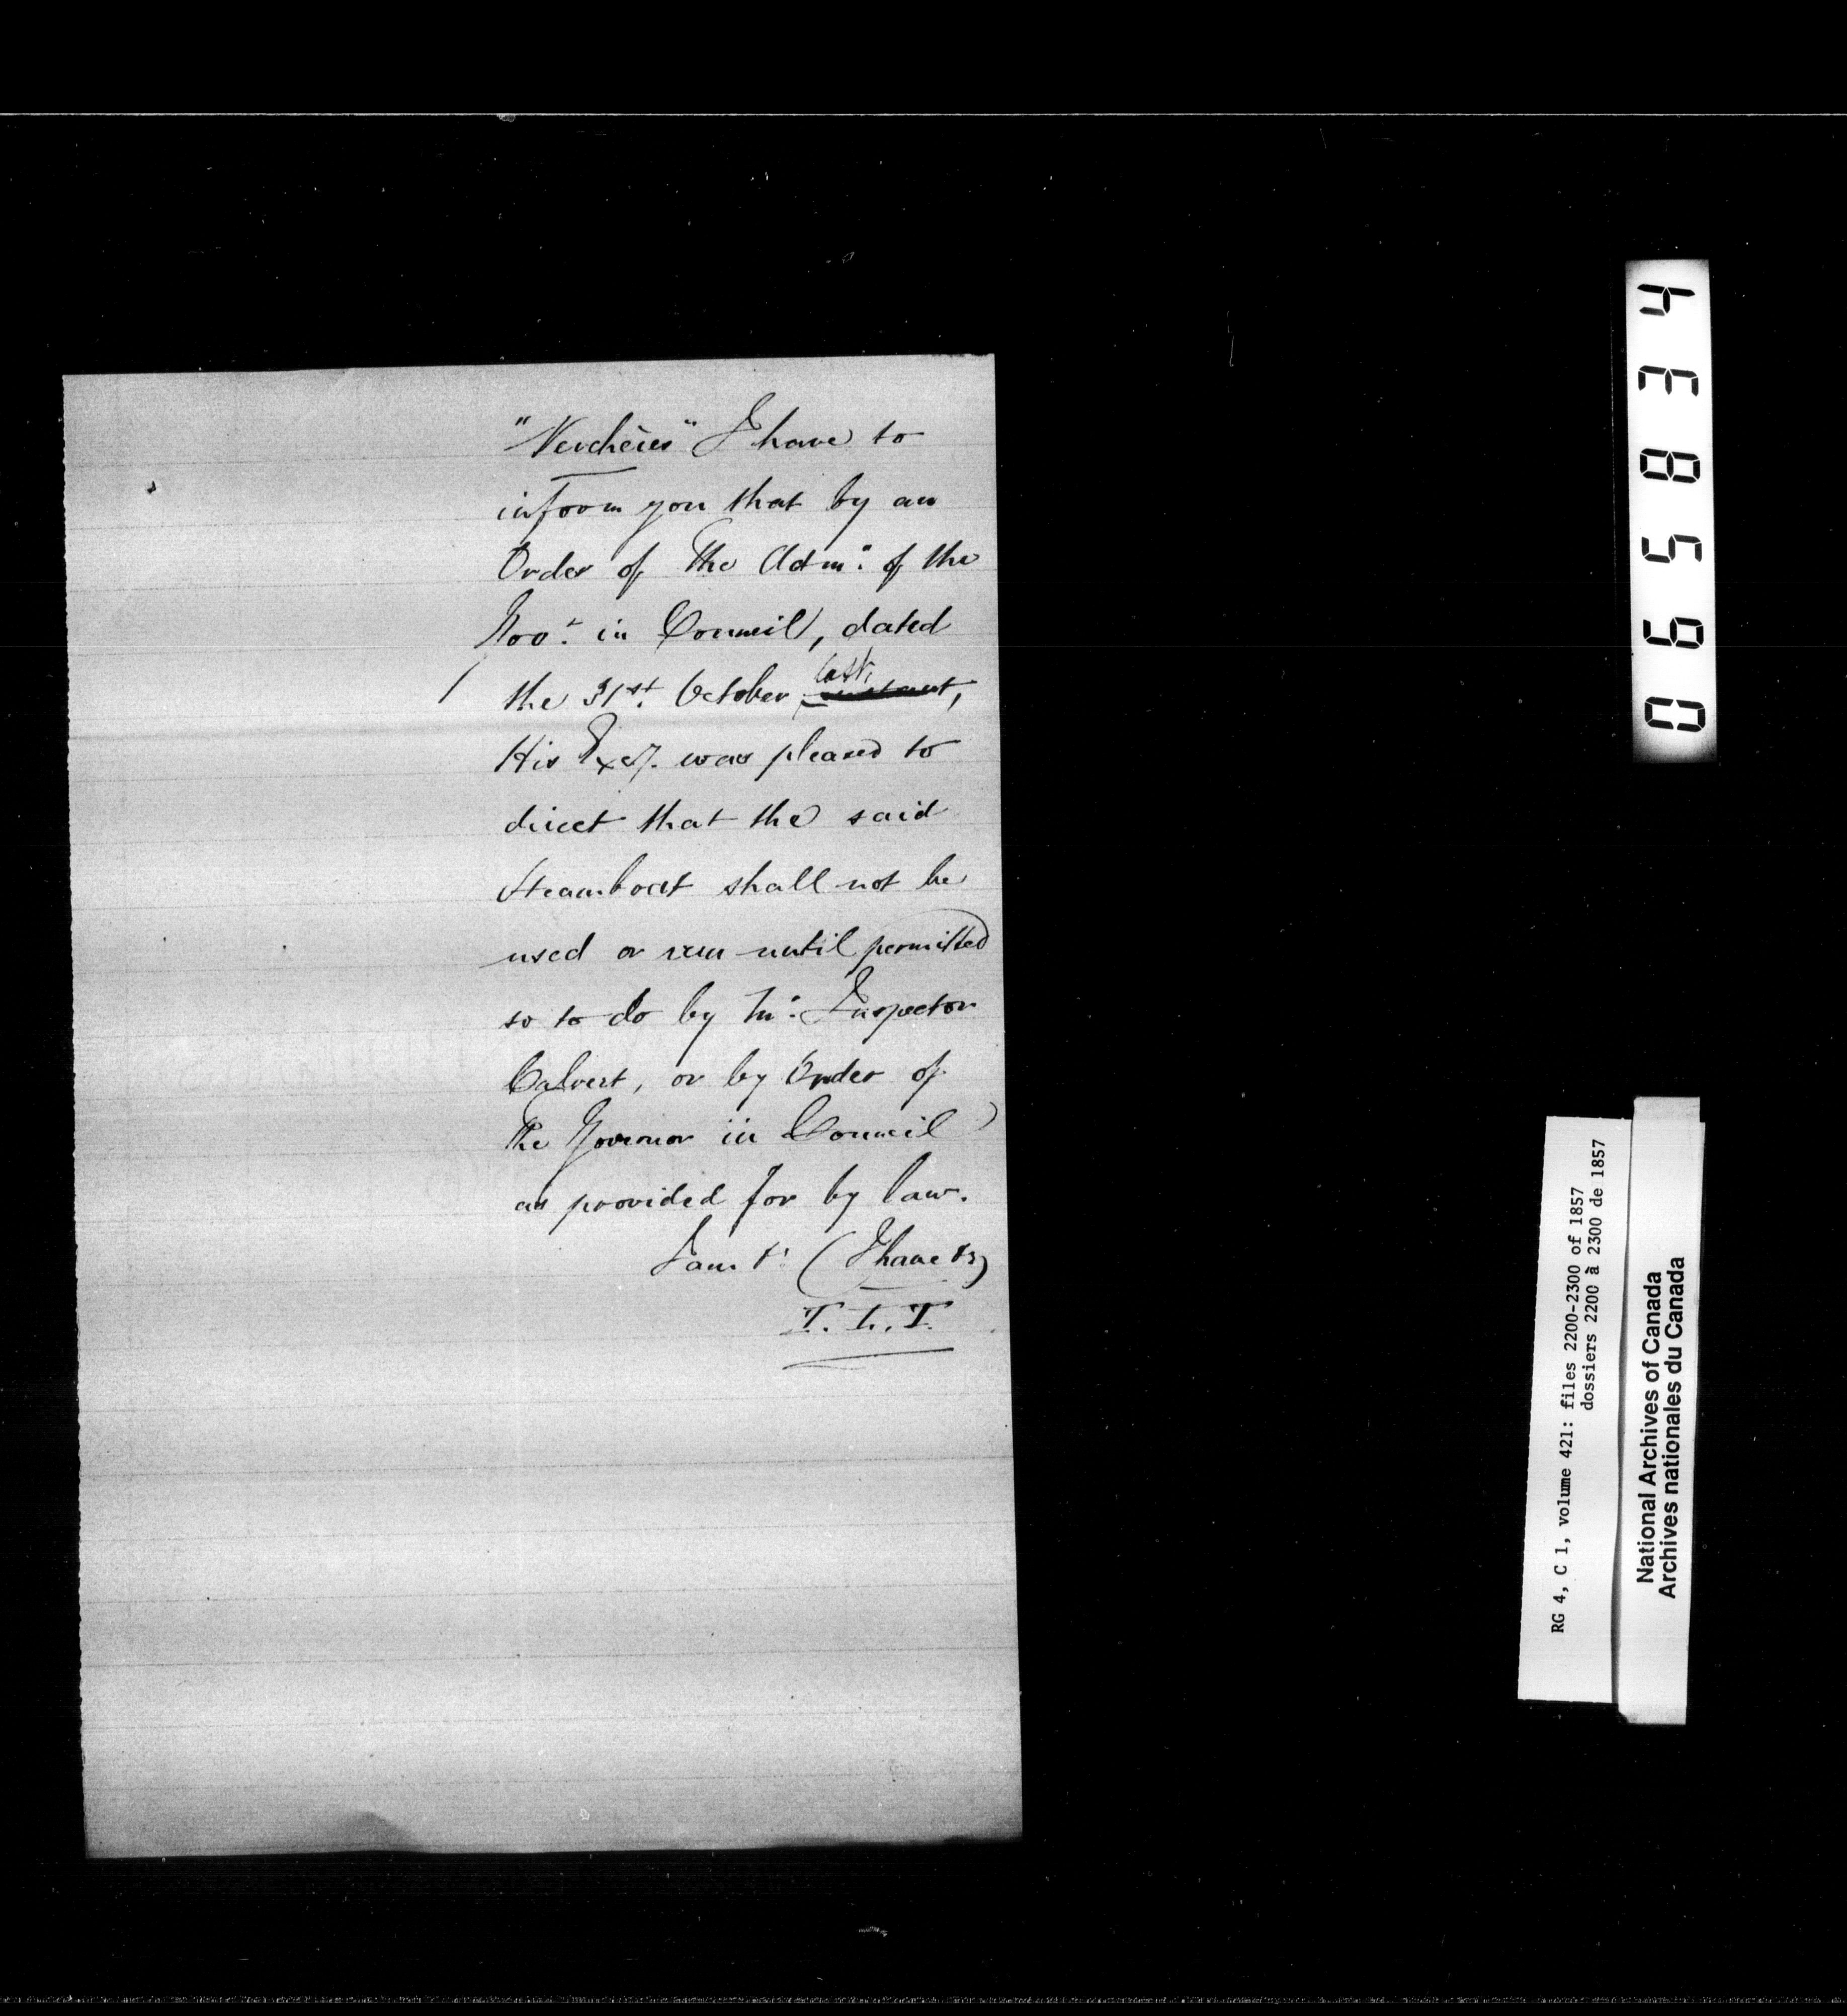 "Verchères" I have to
inform you that by an
Order of The Adm.r of the
Gov.t in Council, dated
the 31st. October last, instant,
His Excy. was pleased to
direct that the said
Steamboat shall not be
used or run until permitted
so to do by Mr. Inspector
Calvert, or by Order of
the Governor in Council
as provided for by law.
I am &c (I have &c)
T. L. T.
065834
RG 4, C 1, volume 421: files 2200-2300 of 1857
dossiers 2200 à 2300 de 1857
National Archives of Canada
Archives nationales du Canada